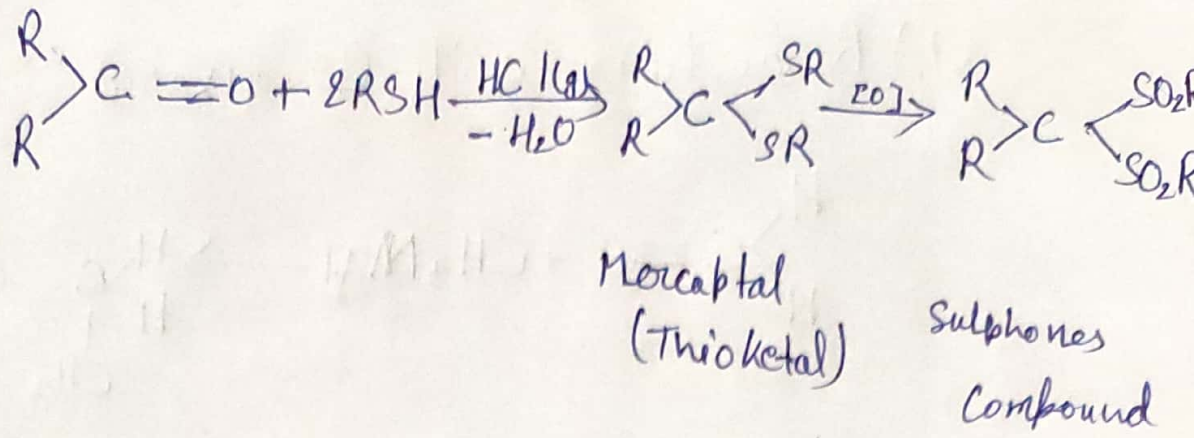 R R C = O + 2RSH HCl(g) - H₂O R R C SR SR [O] R R C SO₂R SO₂R
Mercaptal
(Thioketal)
Sulphones
Compound